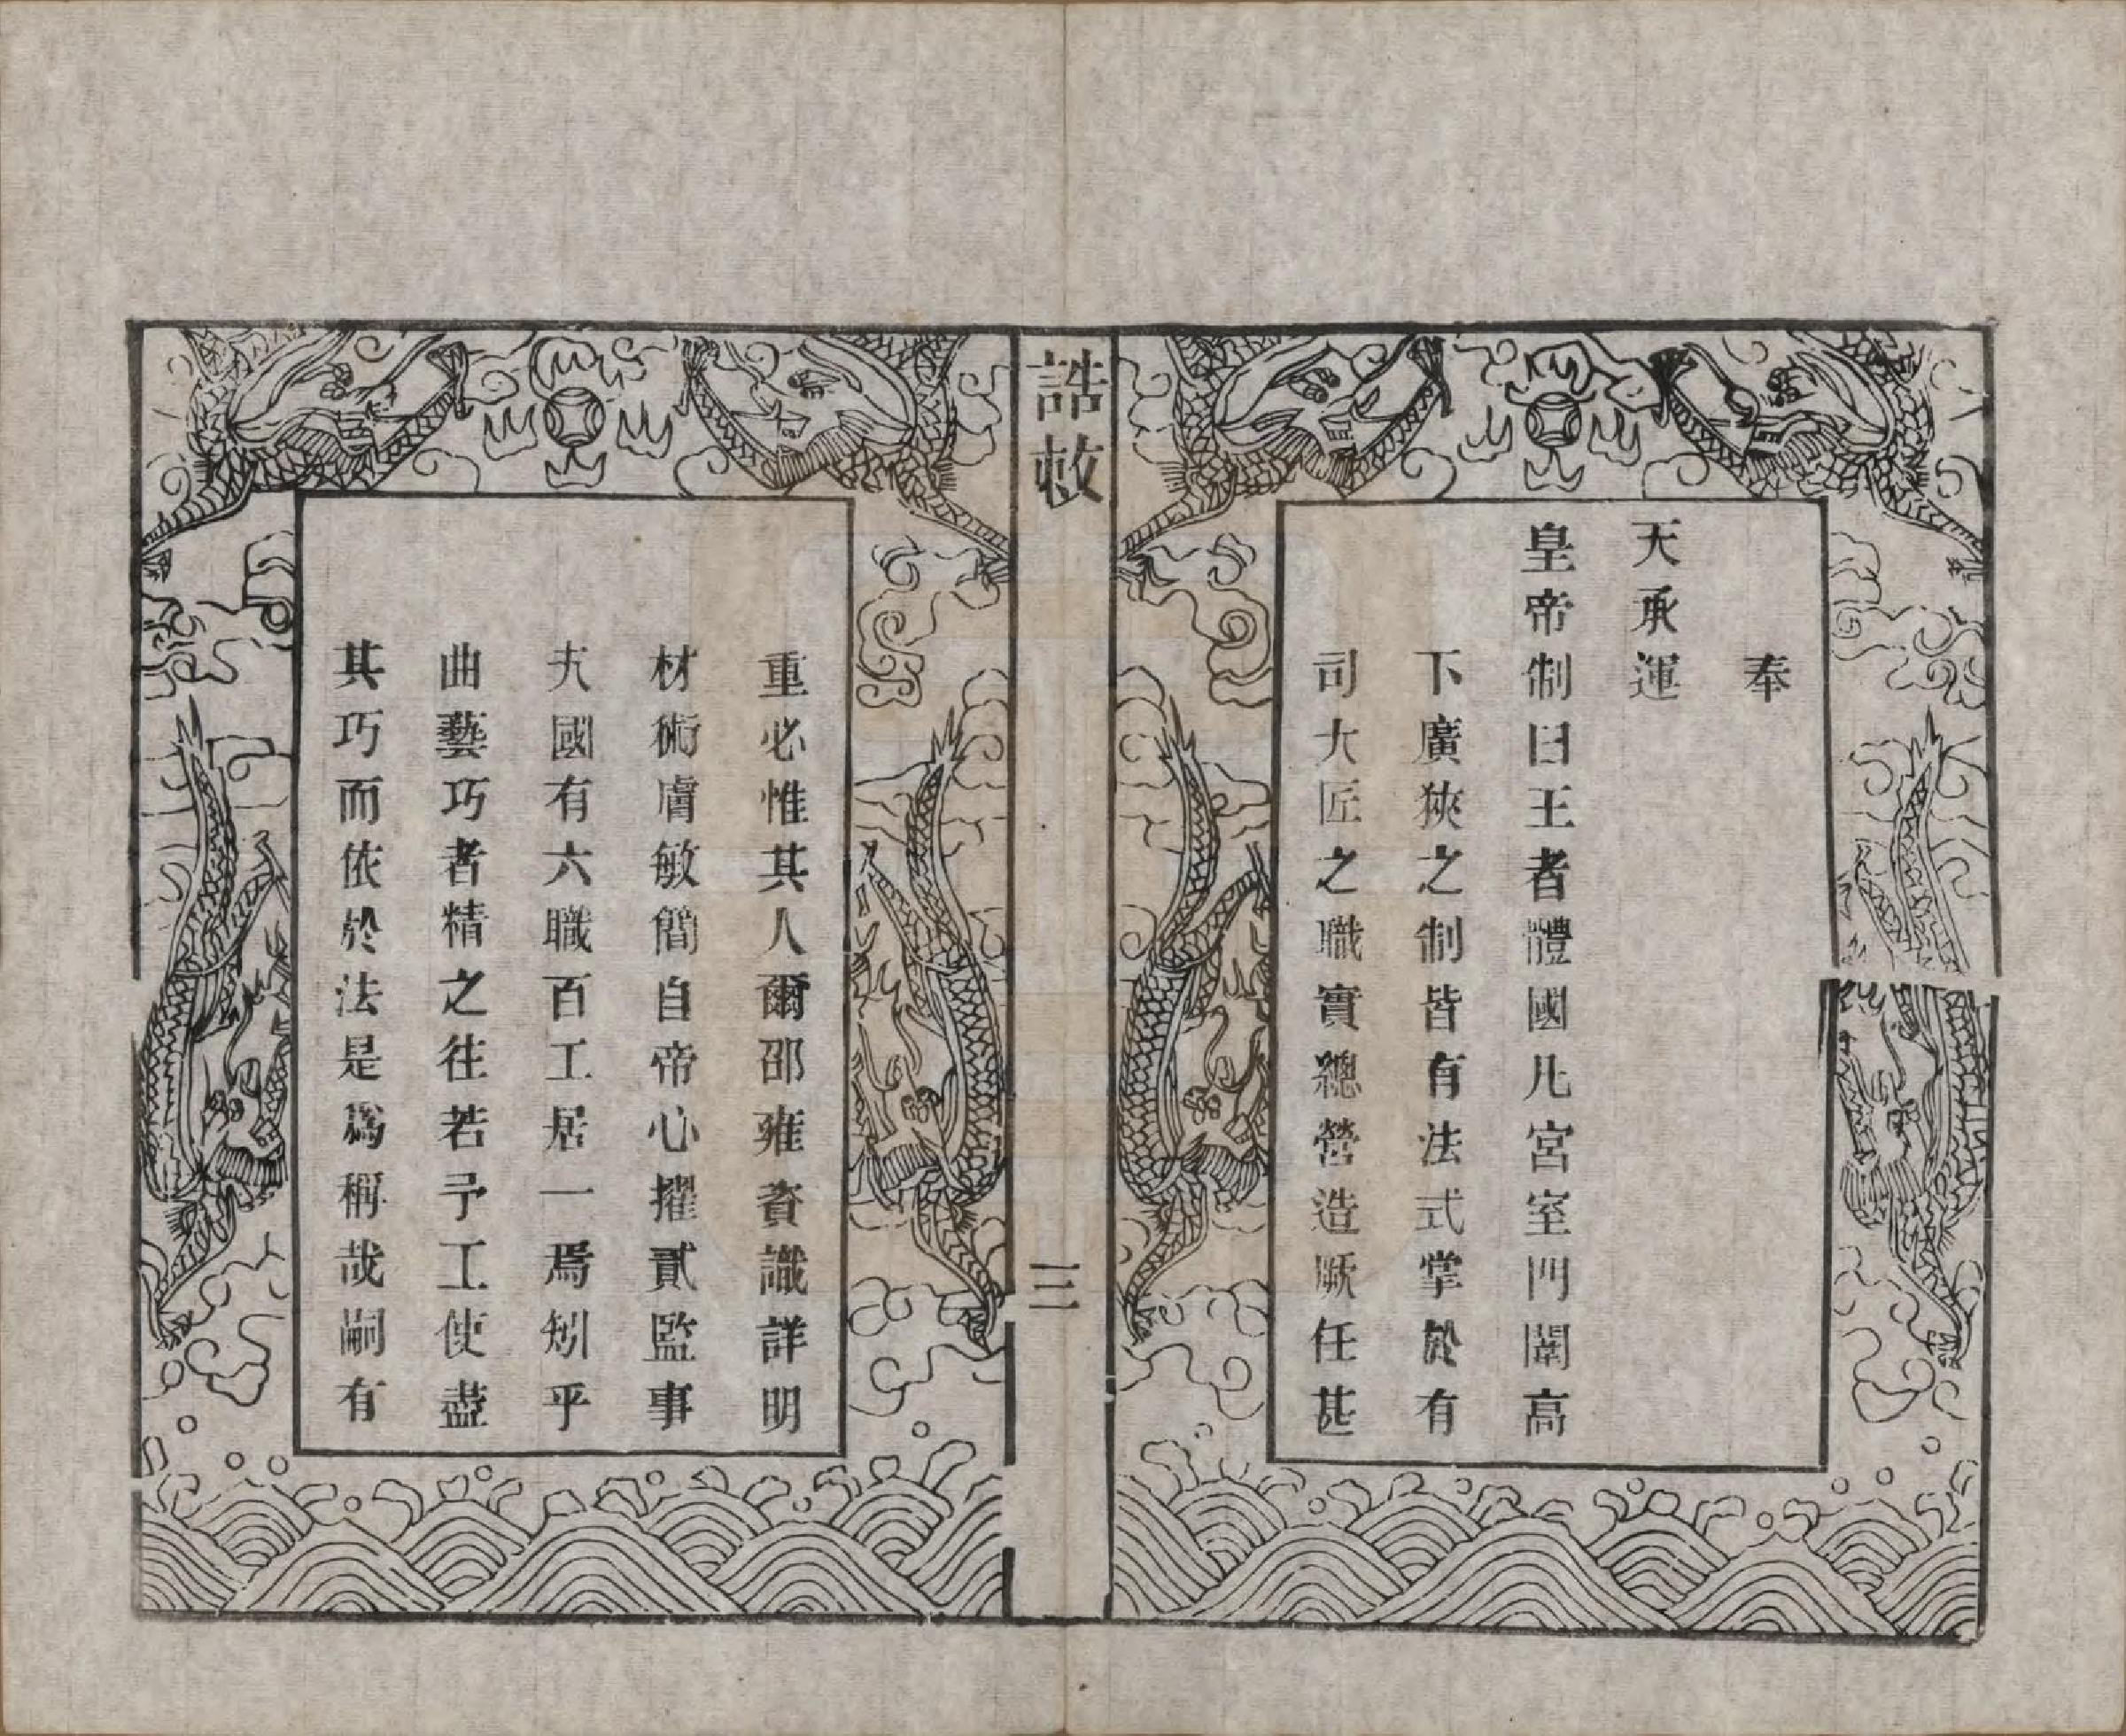 奉
天承運
皇帝制曰王者體國凡宮室門闈高
下廣狹之制皆有法式掌於有
司大匠之職實總營造厥任甚
誥敕
三
重必惟其人爾邵雍資識詳明
材術膚敏簡自帝心擢貳監事
夫國有六職百工居一焉矧乎
曲藝巧者精之往若予工使盡
其巧而依於法是爲稱哉嗣有